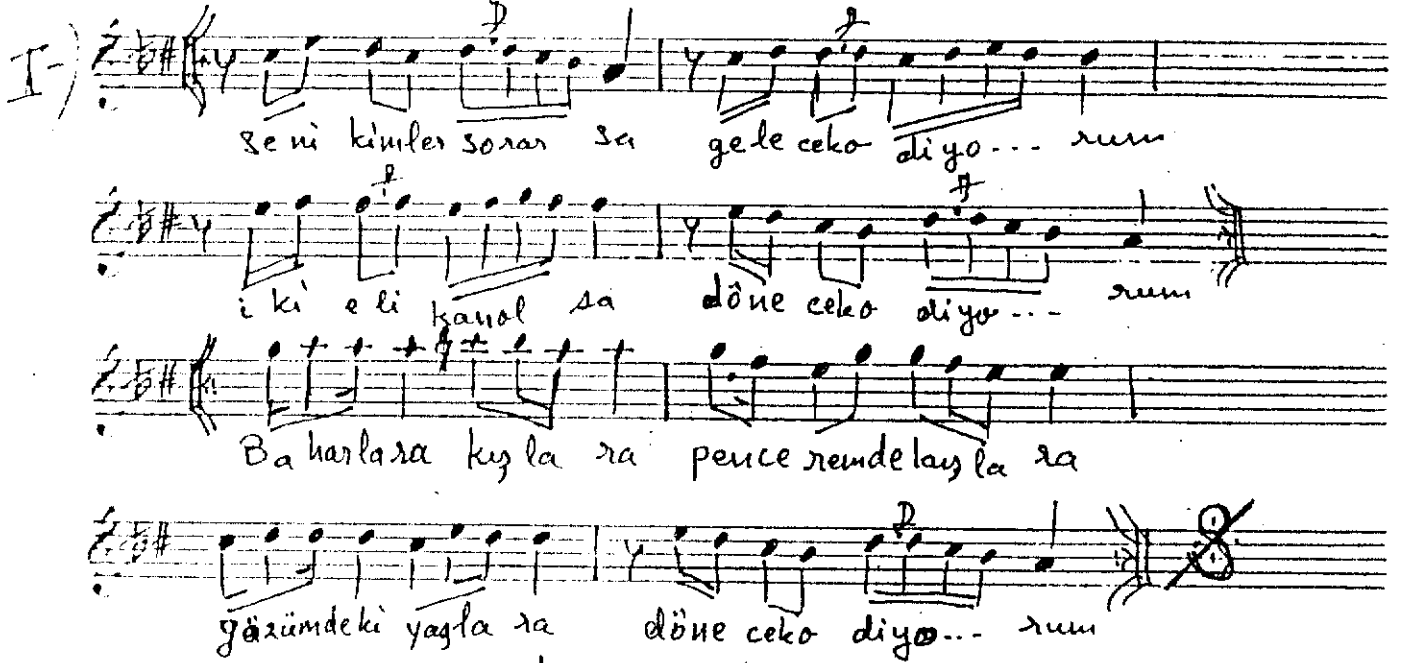 I-)
seni kimler sorar sa gele ceko diyo... rum
i ki eli kanol sa döne ceko diyo... rum
Ba harlara kışla ra pence remdekuşla ra
gözümdeki yaşla ra döne ceko diyo... rum